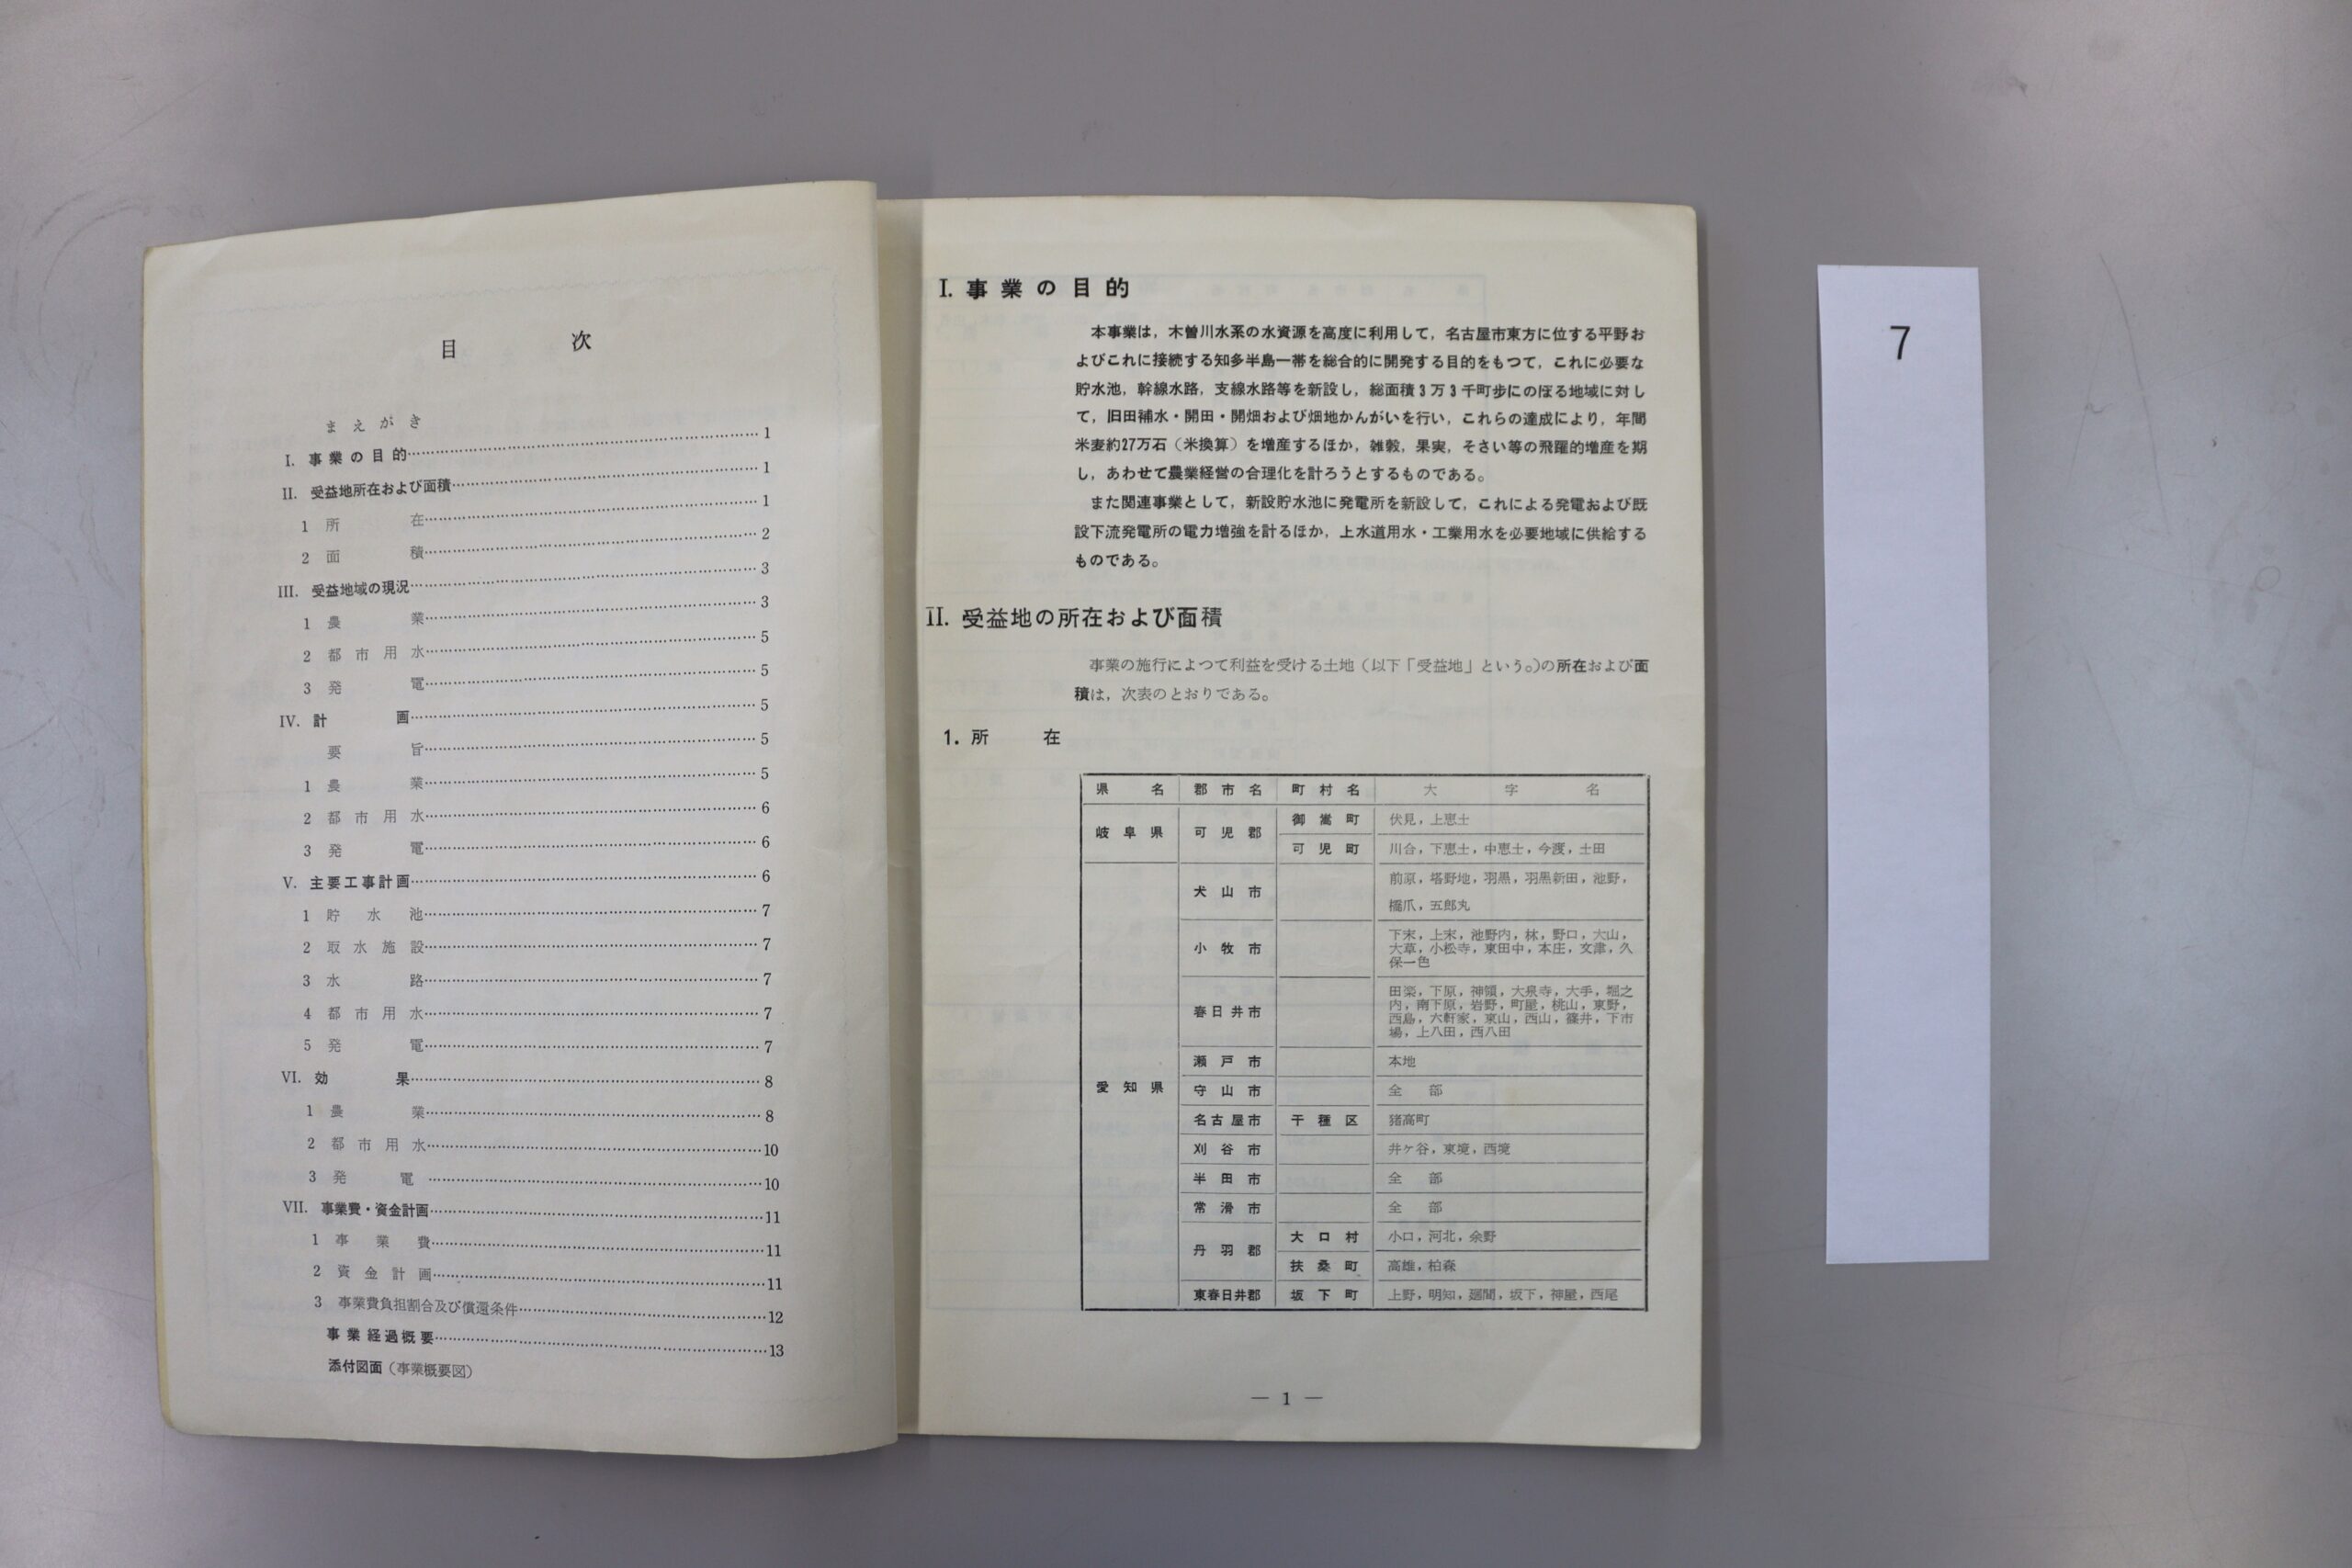 目 次
まえがき
I. 事業の目的……1
II. 受益地所在および面積……1
1 所 在……1
2 面 積……2
III. 受益地域の現況……3
1 農 業……3
2 都市用水……5
3 発 電……5
IV. 計 画……5
要 旨……5
1 農 業……5
2 都市用水……6
3 発 電……6
V. 主要工事計画……6
1 貯水池……7
2 取水施設……7
3 水 路……7
4 都市用水……7
5 発 電……7
VI. 効 果……8
1 農 業……8
2 都市用水……10
3 発 電……10
VII. 事業費・資金計画……11
1 事業費……11
2 資金計画……11
3 事業費負担割合及び償還条件……12
事業経過概要……13
添付図面(事業概要図)
I. 事業の目的
本事業は，木曽川水系の水資源を高度に利用して，名古屋市東方に位する平野お
よびこれに接続する知多半島一帯を総合的に開発する目的をもつて，これに必要な
貯水池，幹線水路，支線水路等を新設し，総面積3万3千町歩にのぼる地域に対し
て，旧田補水・開田・開畑および畑地かんがいを行い，これらの達成により，年間
米麦約27万石（米換算）を増産するほか，雑穀，果実，そさい等の飛躍的増産を期
し，あわせて農業経営の合理化を計ろうとするものである。
また関連事業として，新設貯水池に発電所を新設して，これによる発電および既
設下流発電所の電力増強を計るほか，上水道用水・工業用水を必要地域に供給する
ものである。
II. 受益地の所在および面積
事業の施行によつて利益を受ける土地（以下「受益地」という。)の所在および面
積は，次表のとおりである。
1. 所 在
県 名 郡市名 町村名 大 字 名
岐阜県 可児郡 御嵩町 伏見，上恵土
可児町 川合，下恵土，中恵土，今渡，土田
愛知県 犬山市 前原，塔野地，羽黒，羽黒新田，池野，
橋爪，五郎丸
小牧市 下末，上末，池野内，林，野口，大山，
大草，小松寺，東田中，本庄，文津，久
保一色
春日井市 田楽，下原，神領，大泉寺，大手，堀之
内，南下原，岩野，町屋，桃山，東野，
西島，六軒家，東山，西山，篠井，下市
場，上八田，西八田
瀬戸市 本地
守山市 全 部
名古屋市 千種区 猪高町
刈谷市 井ケ谷，東境，西境
半田市 全 部
常滑市 全 部
丹羽郡 大口村 小口，河北，余野
扶桑町 高雄，柏森
東春日井郡 坂下町 上野，明知，廻間，坂下，神屋，西尾
— 1 —
7